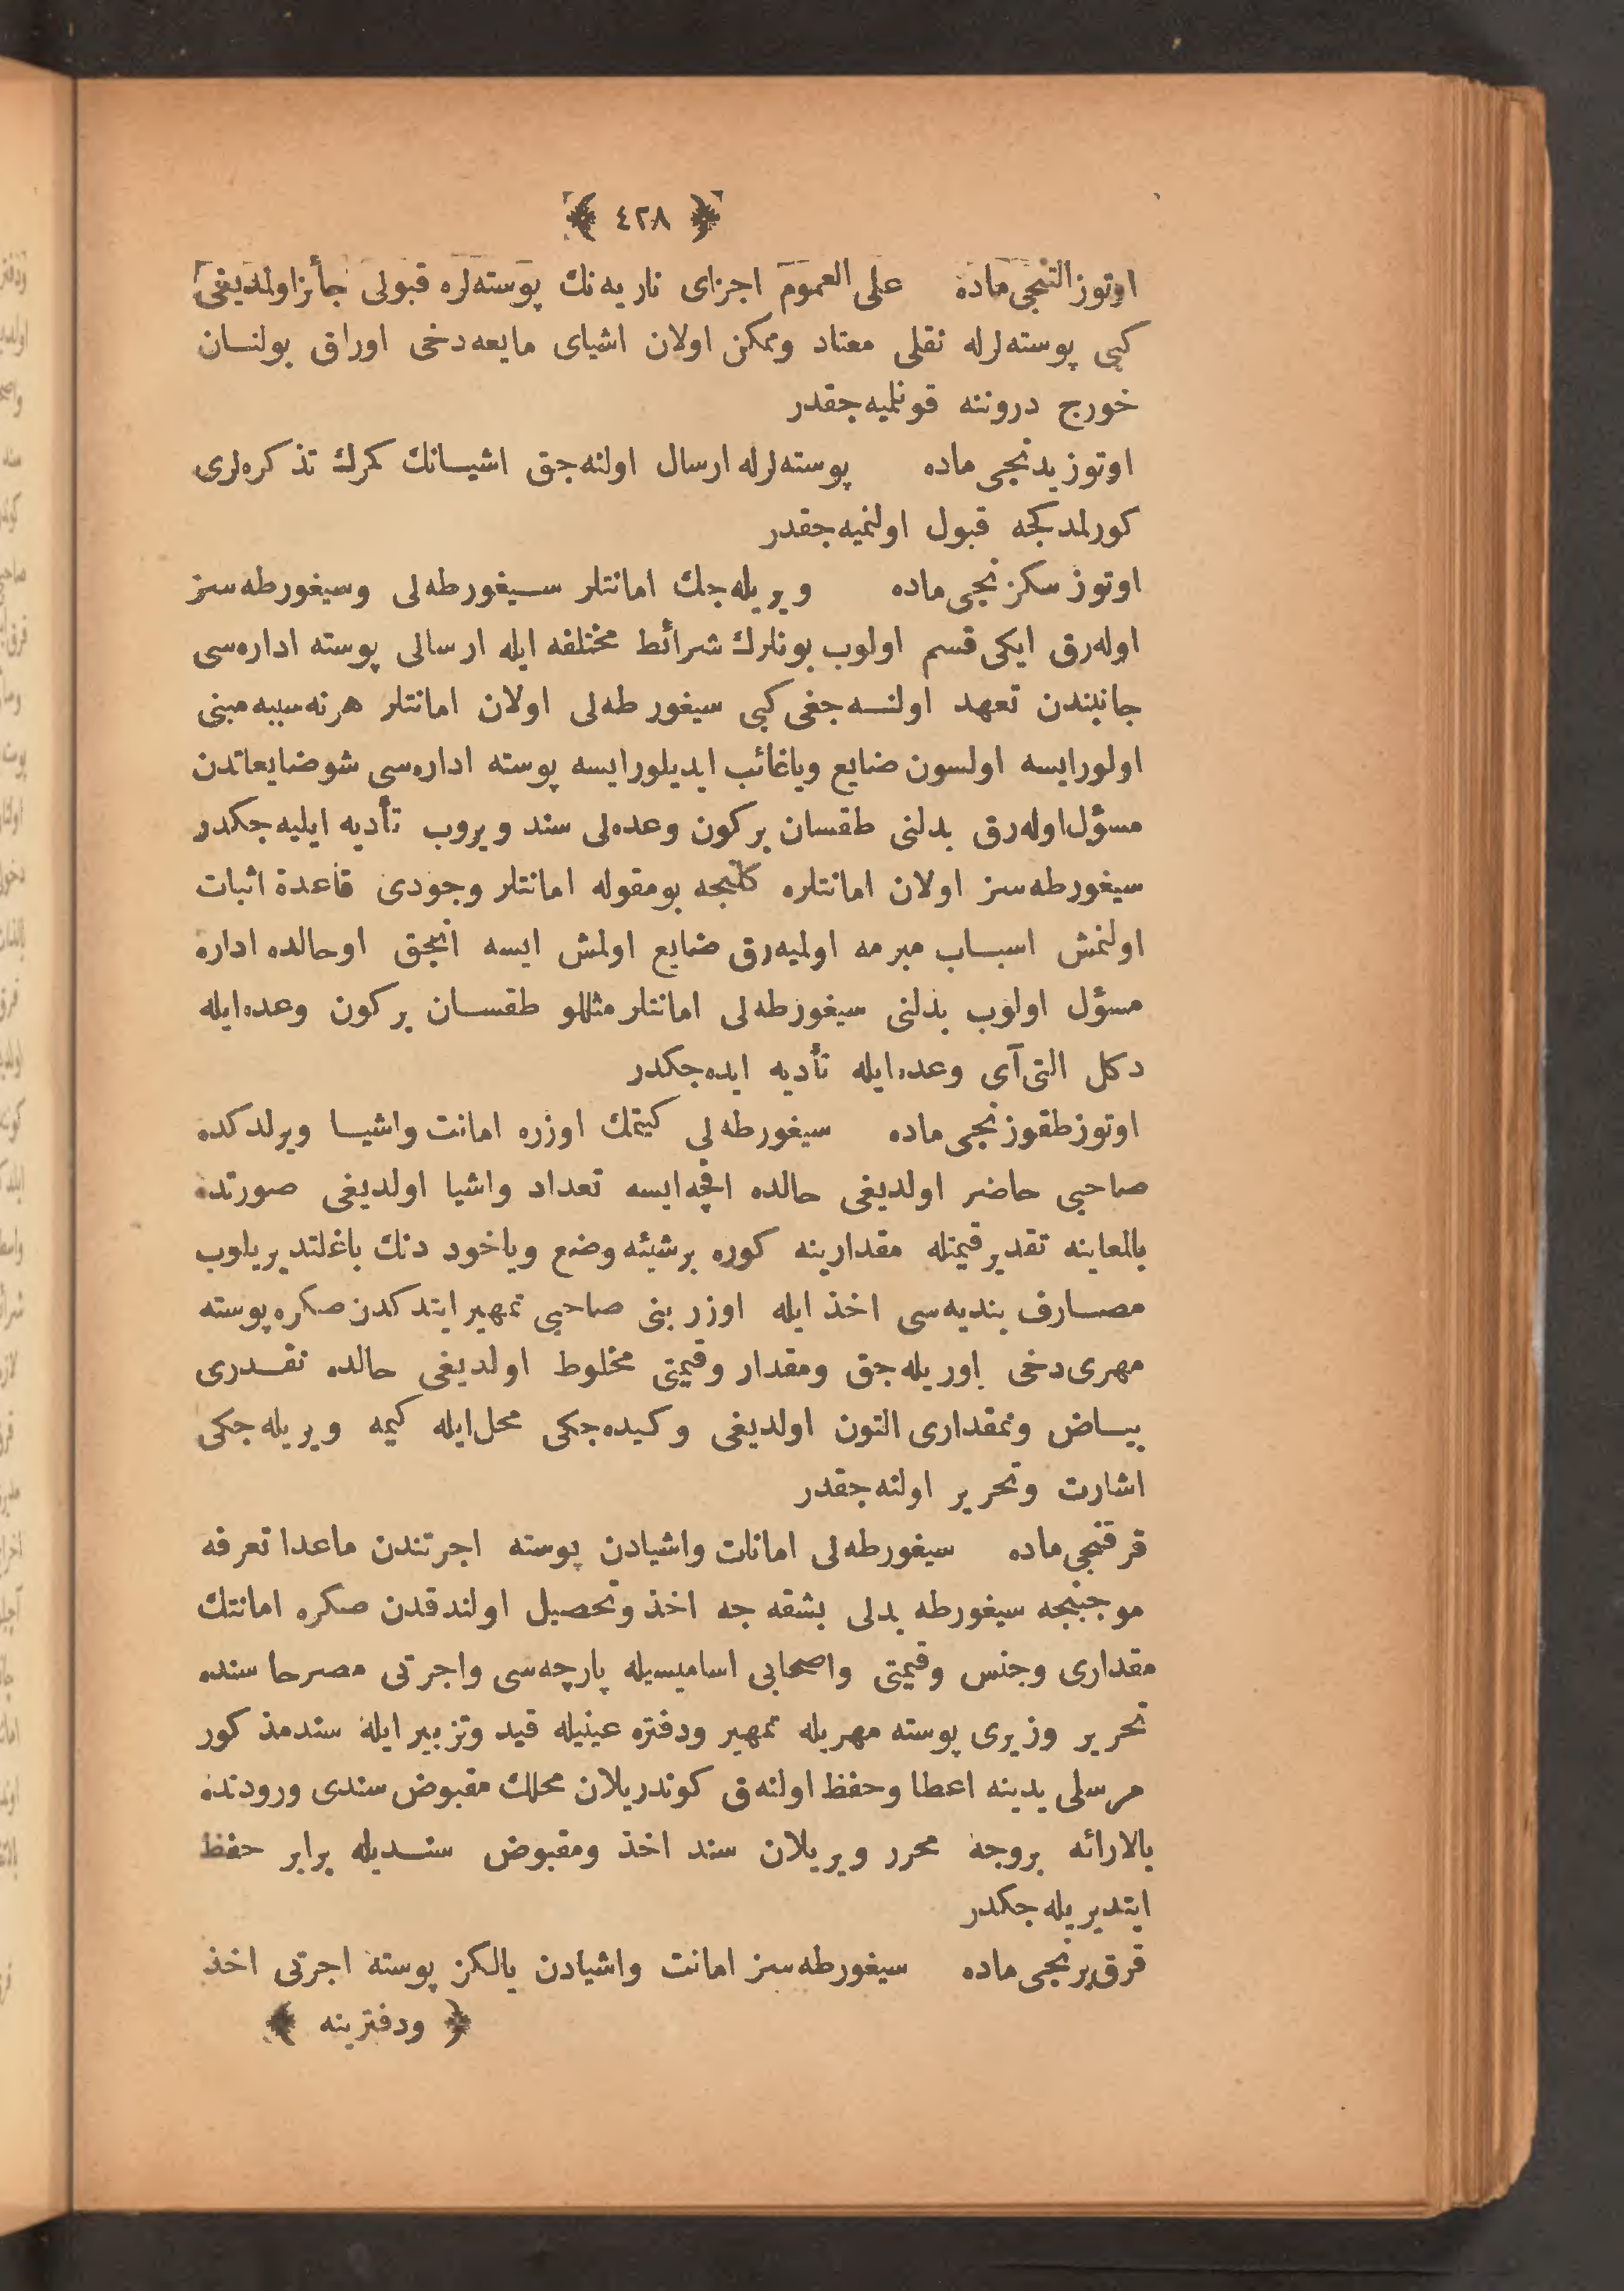 ﴿ ٤٢٨ ﴾
اوتوز التنجى ماده على العموم اجزاى ناريه نك پوسته لره قبولى جأئز اولمديغى
كبى پوسته لرله نقلى معتاد وممكن اولان اشياى مايعه دخى اوراق بولنان
خورج دروننه قونلميه جقدر
اوتوز يدنجى ماده پوسته لرله ارسال اولنه جق اشيانك كمرك تذكره لرى
كورلمدكجه قبول اولنميه جقدر
اوتوز سكزنجى ماده ويريله جك امانتلر سيغورطه لى وسيغورطه سز
اوله رق ايكى قسم اولوب بونلرك شرائط مختلفه ايله ارسالى پوسته اداره سى
جانبندن تعهد اولنه جغى كبى سيغورطه لى اولان امانتلر هر نه سببه مبنى
اولورايسه اولسون ضايع وياغائب ايديلورايسه پوسته اداره سى شو ضايعاتدن
مسؤل اوله رق بدلنى طقسان بر كون وعده لى سند ويروب تأديه ايليه جكدر
سيغورطه سز اولان امانتلره كلنجه بومقوله امانتلر وجودى قاعدة اثبات
اولنمش اسباب مبرمه اولميه رق ضايع اولمش ايسه انجق اوحالده اداره
مسؤل اولوب بدلنى سيغورطه لى امانتلر مثللو طقسان بر كون وعده ايله
دكل التى آى وعده ايله تأديه ايده جكدر
اوتوز طقوزنجى ماده سيغورطه لى كيتمك اوزره امانت واشيا ويرلدكده
صاحبى حاضر اولديغى حالده اقچه ايسه تعداد واشيا اولديغى صورتده
بالمعاينه تقدير قيمتله مقدارينه كوره برشيئه وضع وياخود دنك باغلتديريلوب
مصارف بنديه سى اخذ ايله اوزرينى صاحبى تمهير ايتدكدن صكره پوسته
مهرى دخى اوريله جق ومقدار وقيمتى مخلوط اولديغى حالده نقدرى
بياض ونمقدارى التون اولديغى وكيده جكى محل ايله كيمه ويريله جكى
اشارت وتحرير اولنه جقدر
قرقنجى ماده سيغورطه لى امانات واشيادن پوسته اجرتندن ماعدا تعرفه
موجبنجه سيغورطه بدلى بشقه جه اخذ وتحصيل اولندقدن صكره امانتك
مقدارى وجنس وقيمتى واصحابى اساميسيله پارچه سى واجرتى مصرحا سنده
تحرير وزيرى پوسته مهريله تمهير ودفتره عينيله قيد وتزبير ايله سند مذكور
مرسلى يدينه اعطا وحفظ اولنه ق كوندريلان محلك مقبوض سندى ورودنده
بالارائه بروجه محرر ويريلان سند اخذ ومقبوض سنديله برابر حفظ
ايتديريله جكدر
قرق برنجى ماده سيغورطه سز امانت واشيادن يالكز پوسته اجرتى اخذ
﴿ ودفترينه ﴾